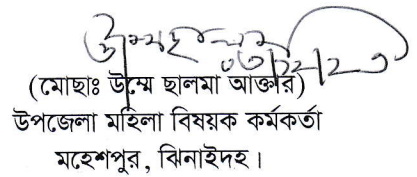 (মোছাঃ উম্মে ছালমা আক্তার)
উপজেলা মহিলা বিষয়ক কর্মকর্তা
মহেশপুর, ঝিনাইদহ।